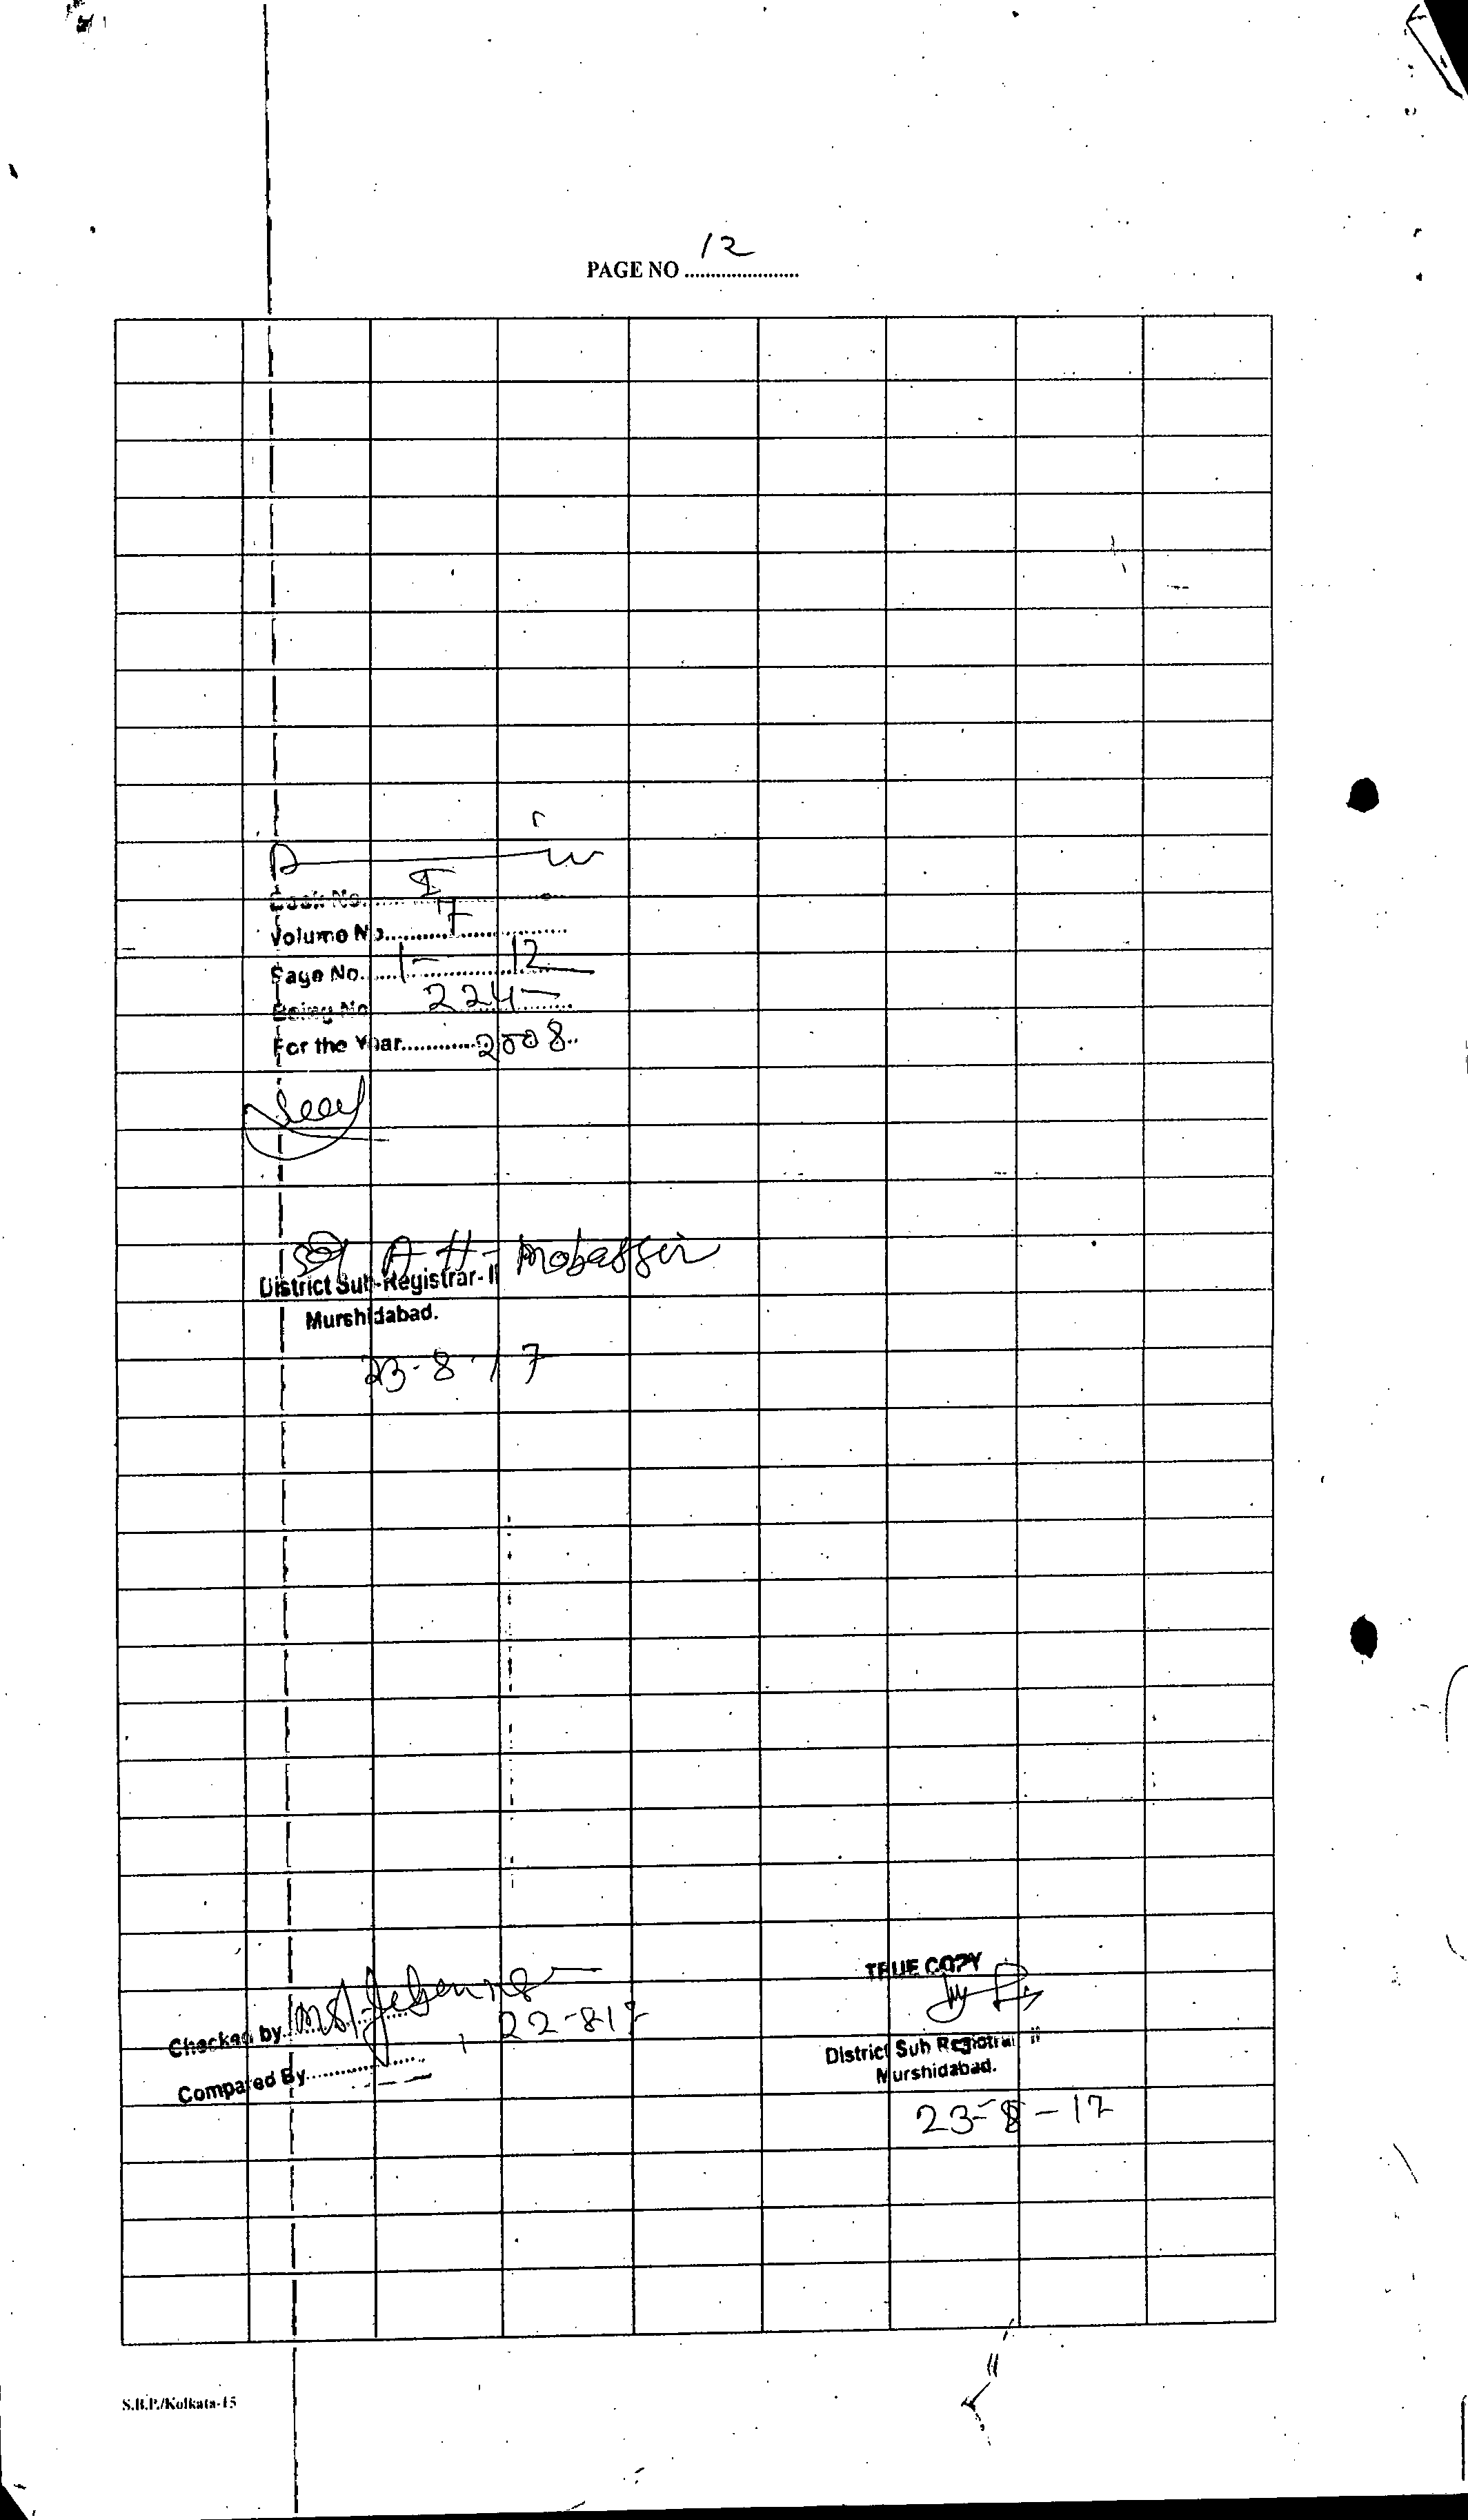 PAGE NO ........ 12
Book No. I
Volume No. 7
Page No. 1 - 12
Being No. 224
For the Year 2008
Sd/ A H - Mobassir
District Sub-Registrar-II
Murshidabad.
23-8-17
TRUE COPY
Checked by 22-8-17
District Sub Registrar ii
Compared By
Murshidabad.
23-8-17
S.B.P./Kolkata-15